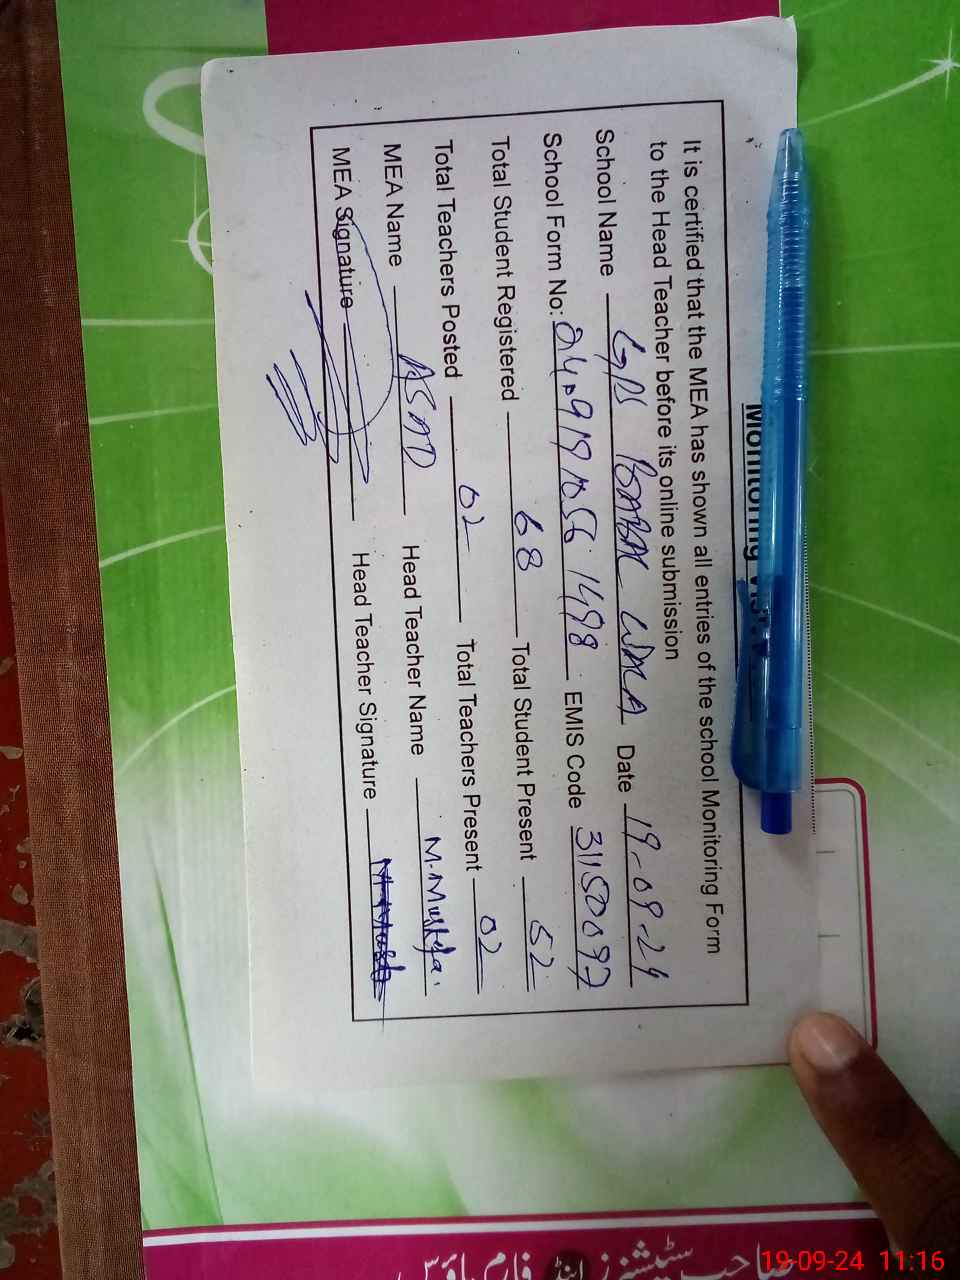 Monitoring Vis
It is certified that the MEA has shown all entries of the school Monitoring Form
to the Head Teacher before its online submission
School Name GPS BABAL WALA Date 19-09-24
School Form No: EMIS Code 31150097
Total Student Registered 68 Total Student Present 52
Total Teachers Posted 02 Total Teachers Present 02
MEA Name ASAD Head Teacher Name M. Mustafa
MEA Signature Head Teacher Signature
صاحب سٹیشنرز اینڈ فارم ہاؤس
19-09-24 11:16